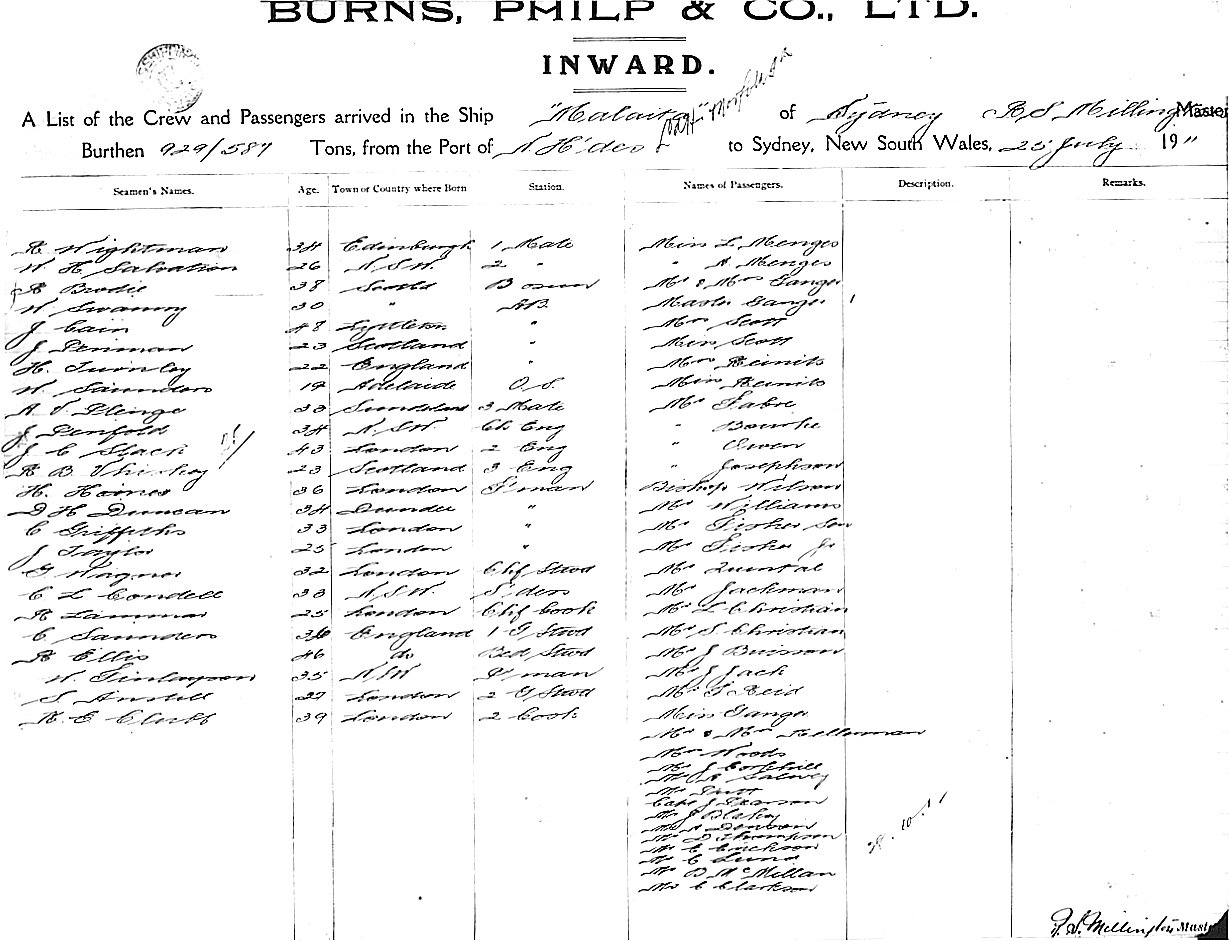 BURNS, PHILP & CO., LTD.
INWARD.
A List of the Crew and Passengers arrived in the Ship "Malaita" of Sydney Master
Burthen 929/587 Tons, from the Port of N H'des to Sydney, New South Wales, 25 July 1911
Seamen's Names. Age. Town or Country where Born Station. Names of Passengers. Description. Remarks.
Wightman 34 Edinburgh 1 Mate Miss L Menges
W H Salvation 26 N.S.W. 2 " " A Menges
Brodie 38 Scotld Bosun Mr & Mrs Ganger
W Swanny 30 " AB Master Ganger 1
J Cain 48 Lyttleton " Mrs Scott
J Penman 23 Scotland " Miss Scott
H. Turnley 22 England " Mrs Reinits
W Saunders 19 Adelaide O.S. Miss Reinits
33 Sunderland 3 Mate Mr Fabre
J Penfold 34 N.S.W. Ch Eng " Bourke
J C Slack 43 London 2 Eng " Owen
23 Scotland 3 Eng " Josephson
H. Haines 36 London F'man Bishop Wilson
D H Duncan 34 Dundee " Mr Williams
C Griffiths 33 London " Mr Fisher Sen
J Taylor 25 London " Mr Fisher Jr
G Wagner 32 London Chf Stwd Mr Quintal
C L Condell 33 N.S.W. S'ders Mr Jackman
25 London Chf Cook Mr L Christian
C Saunders England 1 G Stwd Mr S Christian
R Ellis 46 do Bed Stwd Mr J Buisson
W Finlayson 35 NSW P'man Mr J Jack
S 27 London 2 G Stwd Mr T Reid
39 London 2 Cook Miss Ganger
Mr & Mrs Kellerman
Mrs Woods
Mr J
Mr Salway
Mr
Capt J Pearson
Mr J Blakey
Mr
Mr D Thompson
Mr C Erickson
Mr C Lund
Mr B McMillan
Mr C Clarkson
Millington Master